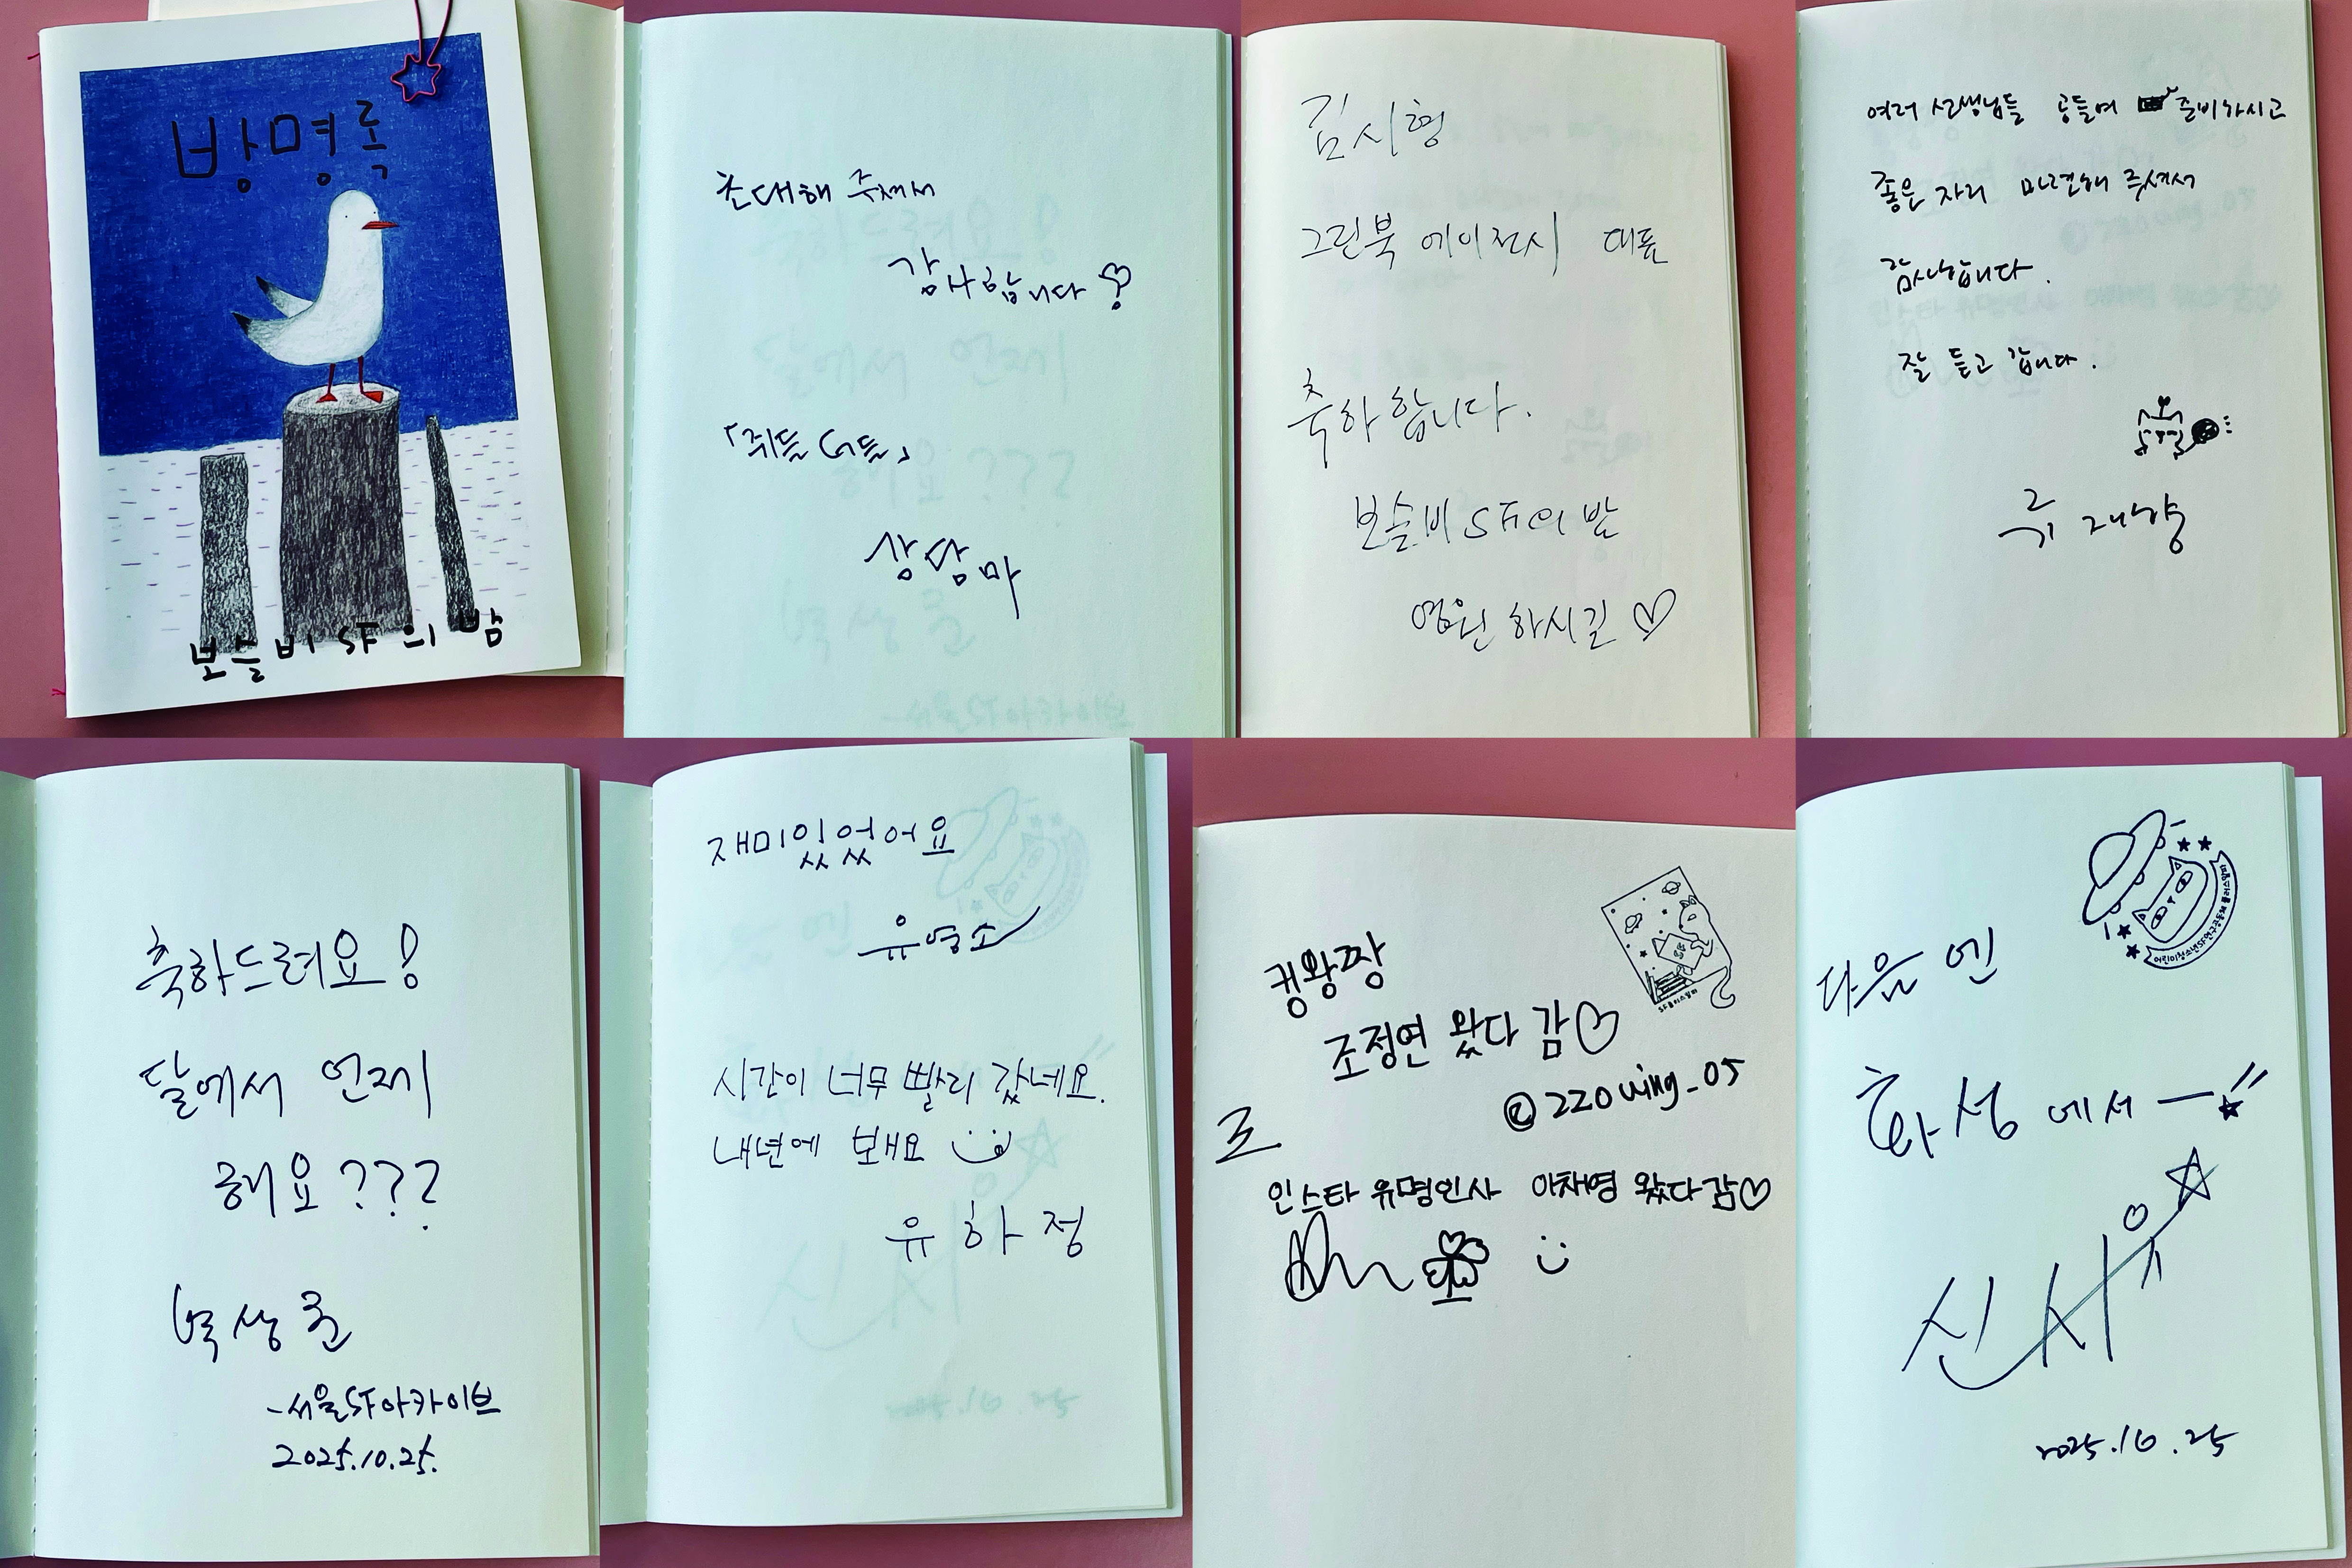 방명록
보슬비 SF의 밤
초대해 주셔서
감사합니다
『쥐들
상담마
김시형
그린북 에이전시 대표
축하합니다.
보슬비 SF의 밤
영원하시길 ♡
여러 선생님들 공들여 준비하시고
좋은 자리 마련해 주셔서
감사합니다.
잘 듣고 갑니다.
류재향
축하드려요!
달에서 언제
해요???
박상준
-서울SF아카이브
2025.10.25.
재미있었어요
유영소
시간이 너무 빨리 갔네요.
내년에 봬요
유하정
킹왕짱
조정연 왔다 감♡
220wing_05
인스타 유명인사 이채영 왔다감♡
다음엔
화성에서
신시유
2025.10.25